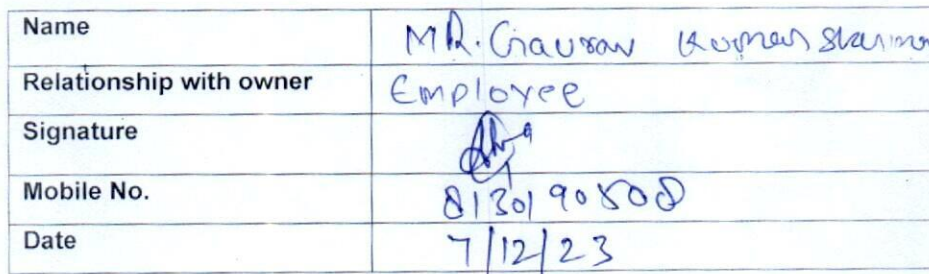 Name MR. Gaurav Kumar Sharma
Relationship with owner Employee
Signature
Mobile No. 8130190808
Date 7/12/23